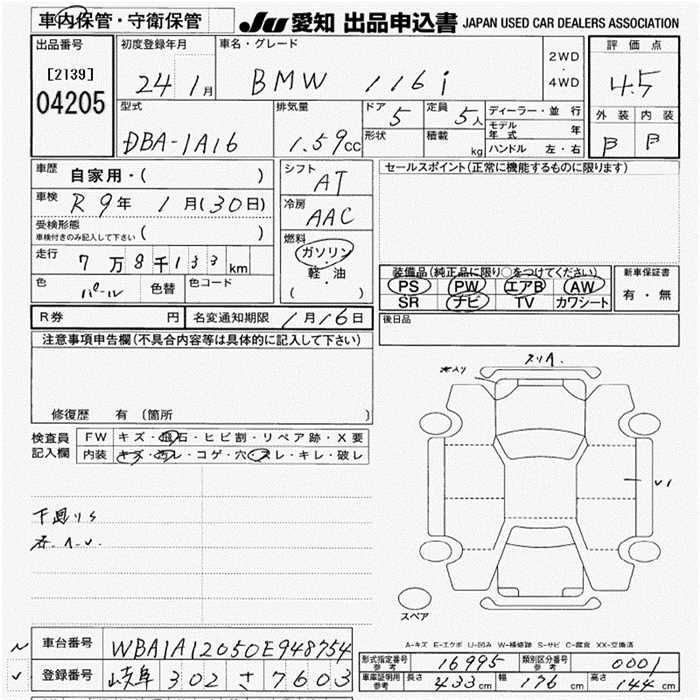 車内保管・守衛保管 JU 愛知 出品申込書 JAPAN USED CAR DEALERS ASSOCIATION
出品番号 初度登録年月 車名・グレード 2WD・4WD 評価点
[2139] 24 1月 BMW 116i 4.5
04205 型式 排気量 ドア 5 定員 5人 ディーラー・並行 外装 内装
DBA-1A16 1.59cc 形状 積載 kg モデル年式 年 B B
ハンドル 左・右
車歴 自家用・( ) シフト AT セールスポイント(正常に機能するものに限ります)
車検 R9年 1月(30日) 冷房 AAC
受検形態 車検付きのみ記入して下さい ( ) 燃料
走行 7万8千133km ガソリン・軽油
( )
装備品(純正品に限り○をつけてください) 新車保証書
色 パール 色替 色コード PS PW エアB AW 有・無
SR ナビ TV カワシート
R券 円 名変通知期限 1月16日 後日品
注意事項申告欄(不具合内容等は具体的に記入して下さい)
修復歴 有 〔箇所 〕
検査員記入欄 FW キズ・飛石・ヒビ割・リペア跡・X要
内装 キズ・汚レ・コゲ・穴・スレ・キレ・破レ
スリA.
下回りS
スペア
A-キズ E-エクボ U-凹み W-補修跡 S-サビ C-腐食 XX-交換済
車台番号 WBA1A12050E948754
登録番号 岐阜 302 さ 7603
型式指定番号 参考 16995 類別区分番号 参考 0001
車庫証明用 参考 長さ 433cm 幅 176cm 高さ 144cm